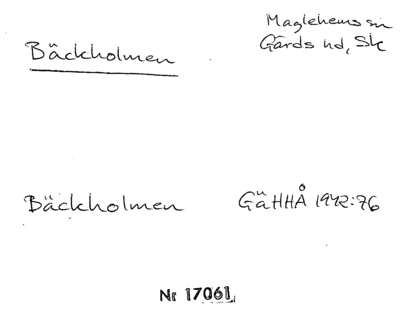 Maglehems sn
Bäckholmen
Gärds hd, Sk
Bäckholmen GäHHÅ 1942:76
Nr 17061